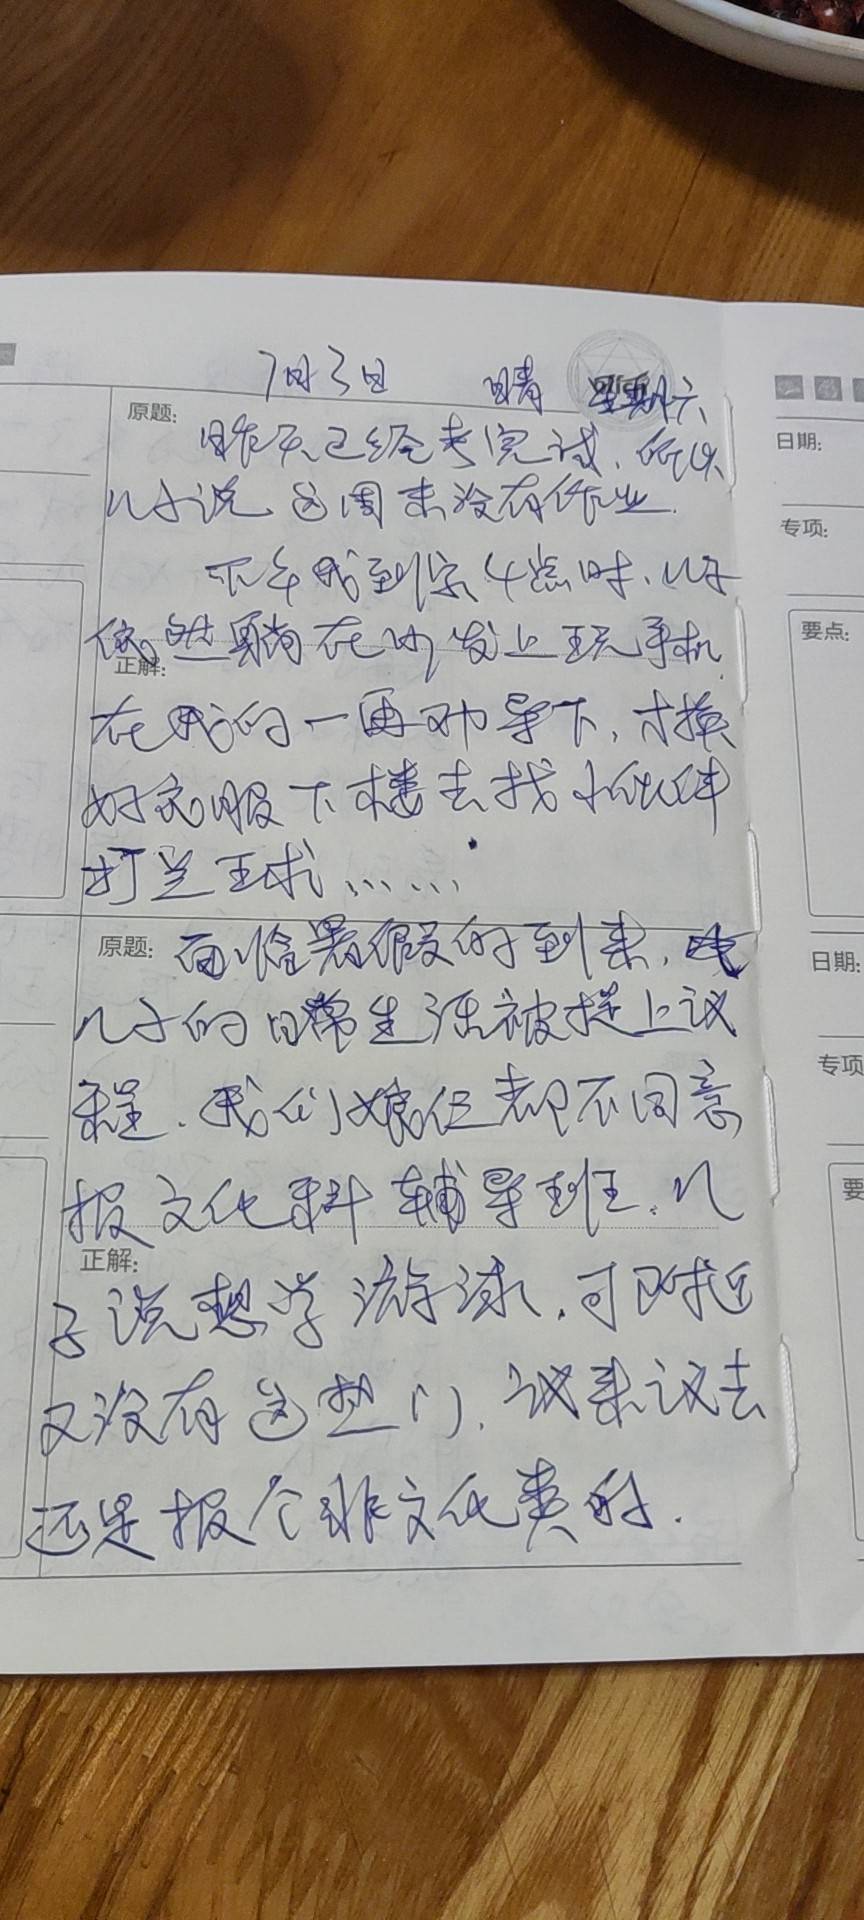 7月3日 晴 星期六
原题:
日期:
昨天已经考完试,所以
儿子说这周末没有作业.
专项:
下午我到家4点时,儿子
要点:
依然躺在沙发上玩手机
正解:
在我的一再劝导下,才换
好衣服下楼去找小伙伴
打篮球……
原题: 面临暑假的到来,
日期:
儿子的日常生活被提上议
程.我们娘仨都不同意
专项
报文化科辅导班.儿
要
正解:
子说想学游泳,可附近
又没有这热门,议来议去
还是报个非文化类的.